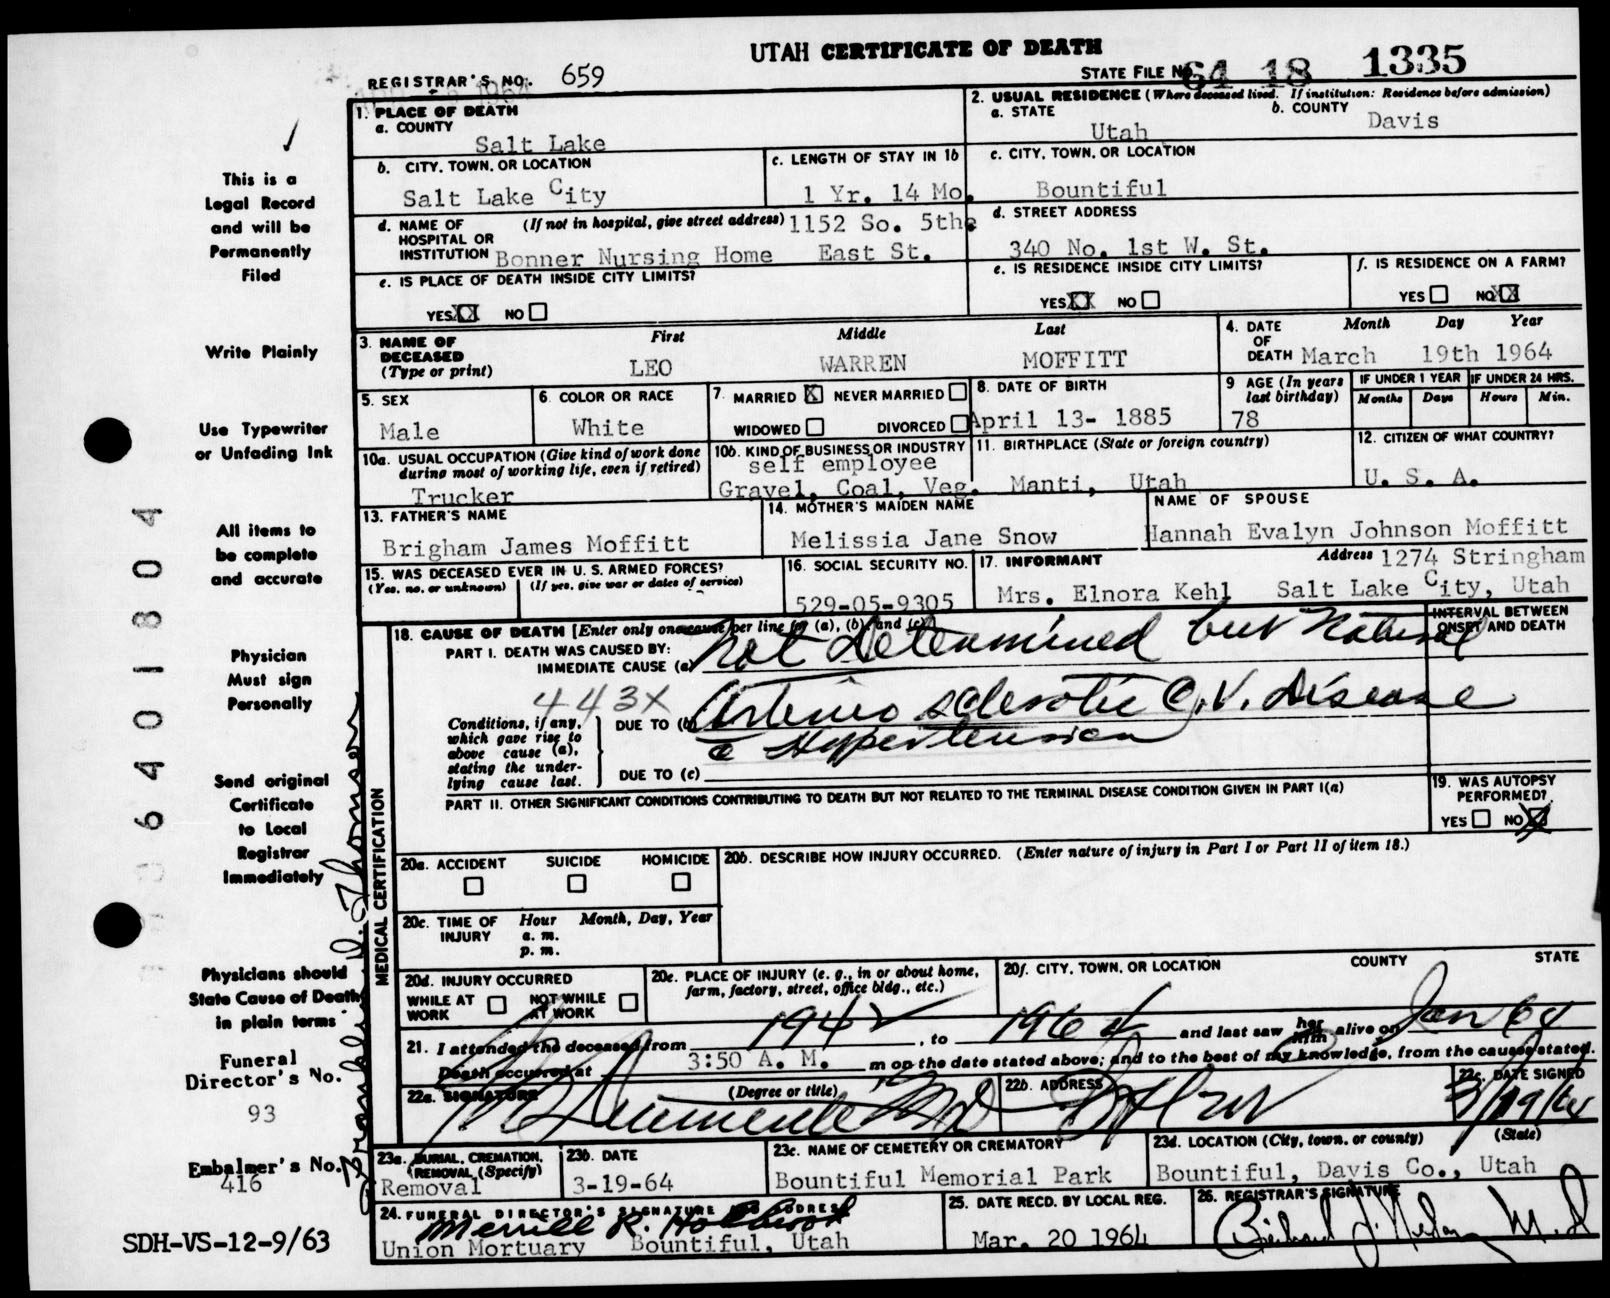 UTAH CERTIFICATE OF DEATH
REGISTRAR'S NO. 659
STATE FILE NO. 64 18 1335
1. PLACE OF DEATH
a. COUNTY
Salt Lake
2. USUAL RESIDENCE (Where deceased lived. If institution: Residence before admission)
a. STATE
Utah
b. COUNTY
Davis
b. CITY, TOWN, OR LOCATION
Salt Lake City
c. LENGTH OF STAY IN 1b
1 Yr. 14 Mo.
c. CITY, TOWN, OR LOCATION
Bountiful
d. NAME OF HOSPITAL OR INSTITUTION
(If not in hospital, give street address) 1152 So. 5th
Bonner Nursing Home East St.
d. STREET ADDRESS
340 No. 1st W. St.
e. IS PLACE OF DEATH INSIDE CITY LIMITS?
YES XX NO
e. IS RESIDENCE INSIDE CITY LIMITS?
YES XX NO
f. IS RESIDENCE ON A FARM?
YES NO XX
3. NAME OF DECEASED (Type or print)
First Middle Last
LEO WARREN MOFFITT
4. DATE OF DEATH
Month Day Year
March 19th 1964
5. SEX
Male
6. COLOR OR RACE
White
7. MARRIED X NEVER MARRIED
WIDOWED DIVORCED
8. DATE OF BIRTH
April 13- 1885
9 AGE (In years last birthday)
78
IF UNDER 1 YEAR
Months Days
IF UNDER 24 HRS.
Hours Min.
10a. USUAL OCCUPATION (Give kind of work done during most of working life, even if retired)
Trucker
10b. KIND OF BUSINESS OR INDUSTRY
self employee
Gravel, Coal, Veg.
11. BIRTHPLACE (State or foreign country)
Manti, Utah
12. CITIZEN OF WHAT COUNTRY?
U. S. A.
13. FATHER'S NAME
Brigham James Moffitt
14. MOTHER'S MAIDEN NAME
Melissia Jane Snow
NAME OF SPOUSE
Hannah Evalyn Johnson Moffitt
15. WAS DECEASED EVER IN U. S. ARMED FORCES?
(Yes, no, or unknown) (If yes, give war or dates of service)
16. SOCIAL SECURITY NO.
529-05-9305
17. INFORMANT
Address 1274 Stringham
Mrs. Elnora Kehl Salt Lake City, Utah
18. CAUSE OF DEATH [Enter only one cause per line for (a), (b), and (c)]
INTERVAL BETWEEN ONSET AND DEATH
PART I. DEATH WAS CAUSED BY:
IMMEDIATE CAUSE (a) Not Determined but Natural
443X
Conditions, if any, which gave rise to above cause (a), stating the underlying cause last.
DUE TO (b) Arterio sclerotic C.V. Disease
c Hypertension
DUE TO (c)
PART II. OTHER SIGNIFICANT CONDITIONS CONTRIBUTING TO DEATH BUT NOT RELATED TO THE TERMINAL DISEASE CONDITION GIVEN IN PART I(a)
19. WAS AUTOPSY PERFORMED?
YES NO X
MEDICAL CERTIFICATION
20a. ACCIDENT SUICIDE HOMICIDE
20b. DESCRIBE HOW INJURY OCCURRED. (Enter nature of injury in Part I or Part II of item 18.)
20c. TIME OF INJURY
Hour Month, Day, Year
a. m.
p. m.
20d. INJURY OCCURRED
WHILE AT WORK NOT WHILE AT WORK
20e. PLACE OF INJURY (e. g., in or about home, farm, factory, street, office bldg., etc.)
20f. CITY, TOWN, OR LOCATION COUNTY STATE
21. I attended the deceased from 1942, to 1964 and last saw her him alive on Jan 64
Death occurred at 3:50 A. M. m on the date stated above; and to the best of my knowledge, from the causes stated.
22a. SIGNATURE (Degree or title)
22b. ADDRESS
22c. DATE SIGNED
3/19/64
23a. BURIAL, CREMATION, REMOVAL (Specify)
Removal
23b. DATE
3-19-64
23c. NAME OF CEMETERY OR CREMATORY
Bountiful Memorial Park
23d. LOCATION (City, town, or county) (State)
Bountiful, Davis Co., Utah
24. FUNERAL DIRECTOR'S SIGNATURE AND ADDRESS
Merrill R. Holbrook
Union Mortuary Bountiful, Utah
25. DATE RECD. BY LOCAL REG.
Mar. 20 1964
26. REGISTRAR'S SIGNATURE
This is a
Legal Record
and will be
Permanently
Filed
Write Plainly
Use Typewriter
or Unfading Ink
All items to
be complete
and accurate
Physician
Must sign
Personally
Send original
Certificate
to Local
Registrar
Immediately
Physicians should
State Cause of Death
in plain terms
Funeral
Director's No.
93
Embalmer's No.
416
SDH-VS-12-9/63